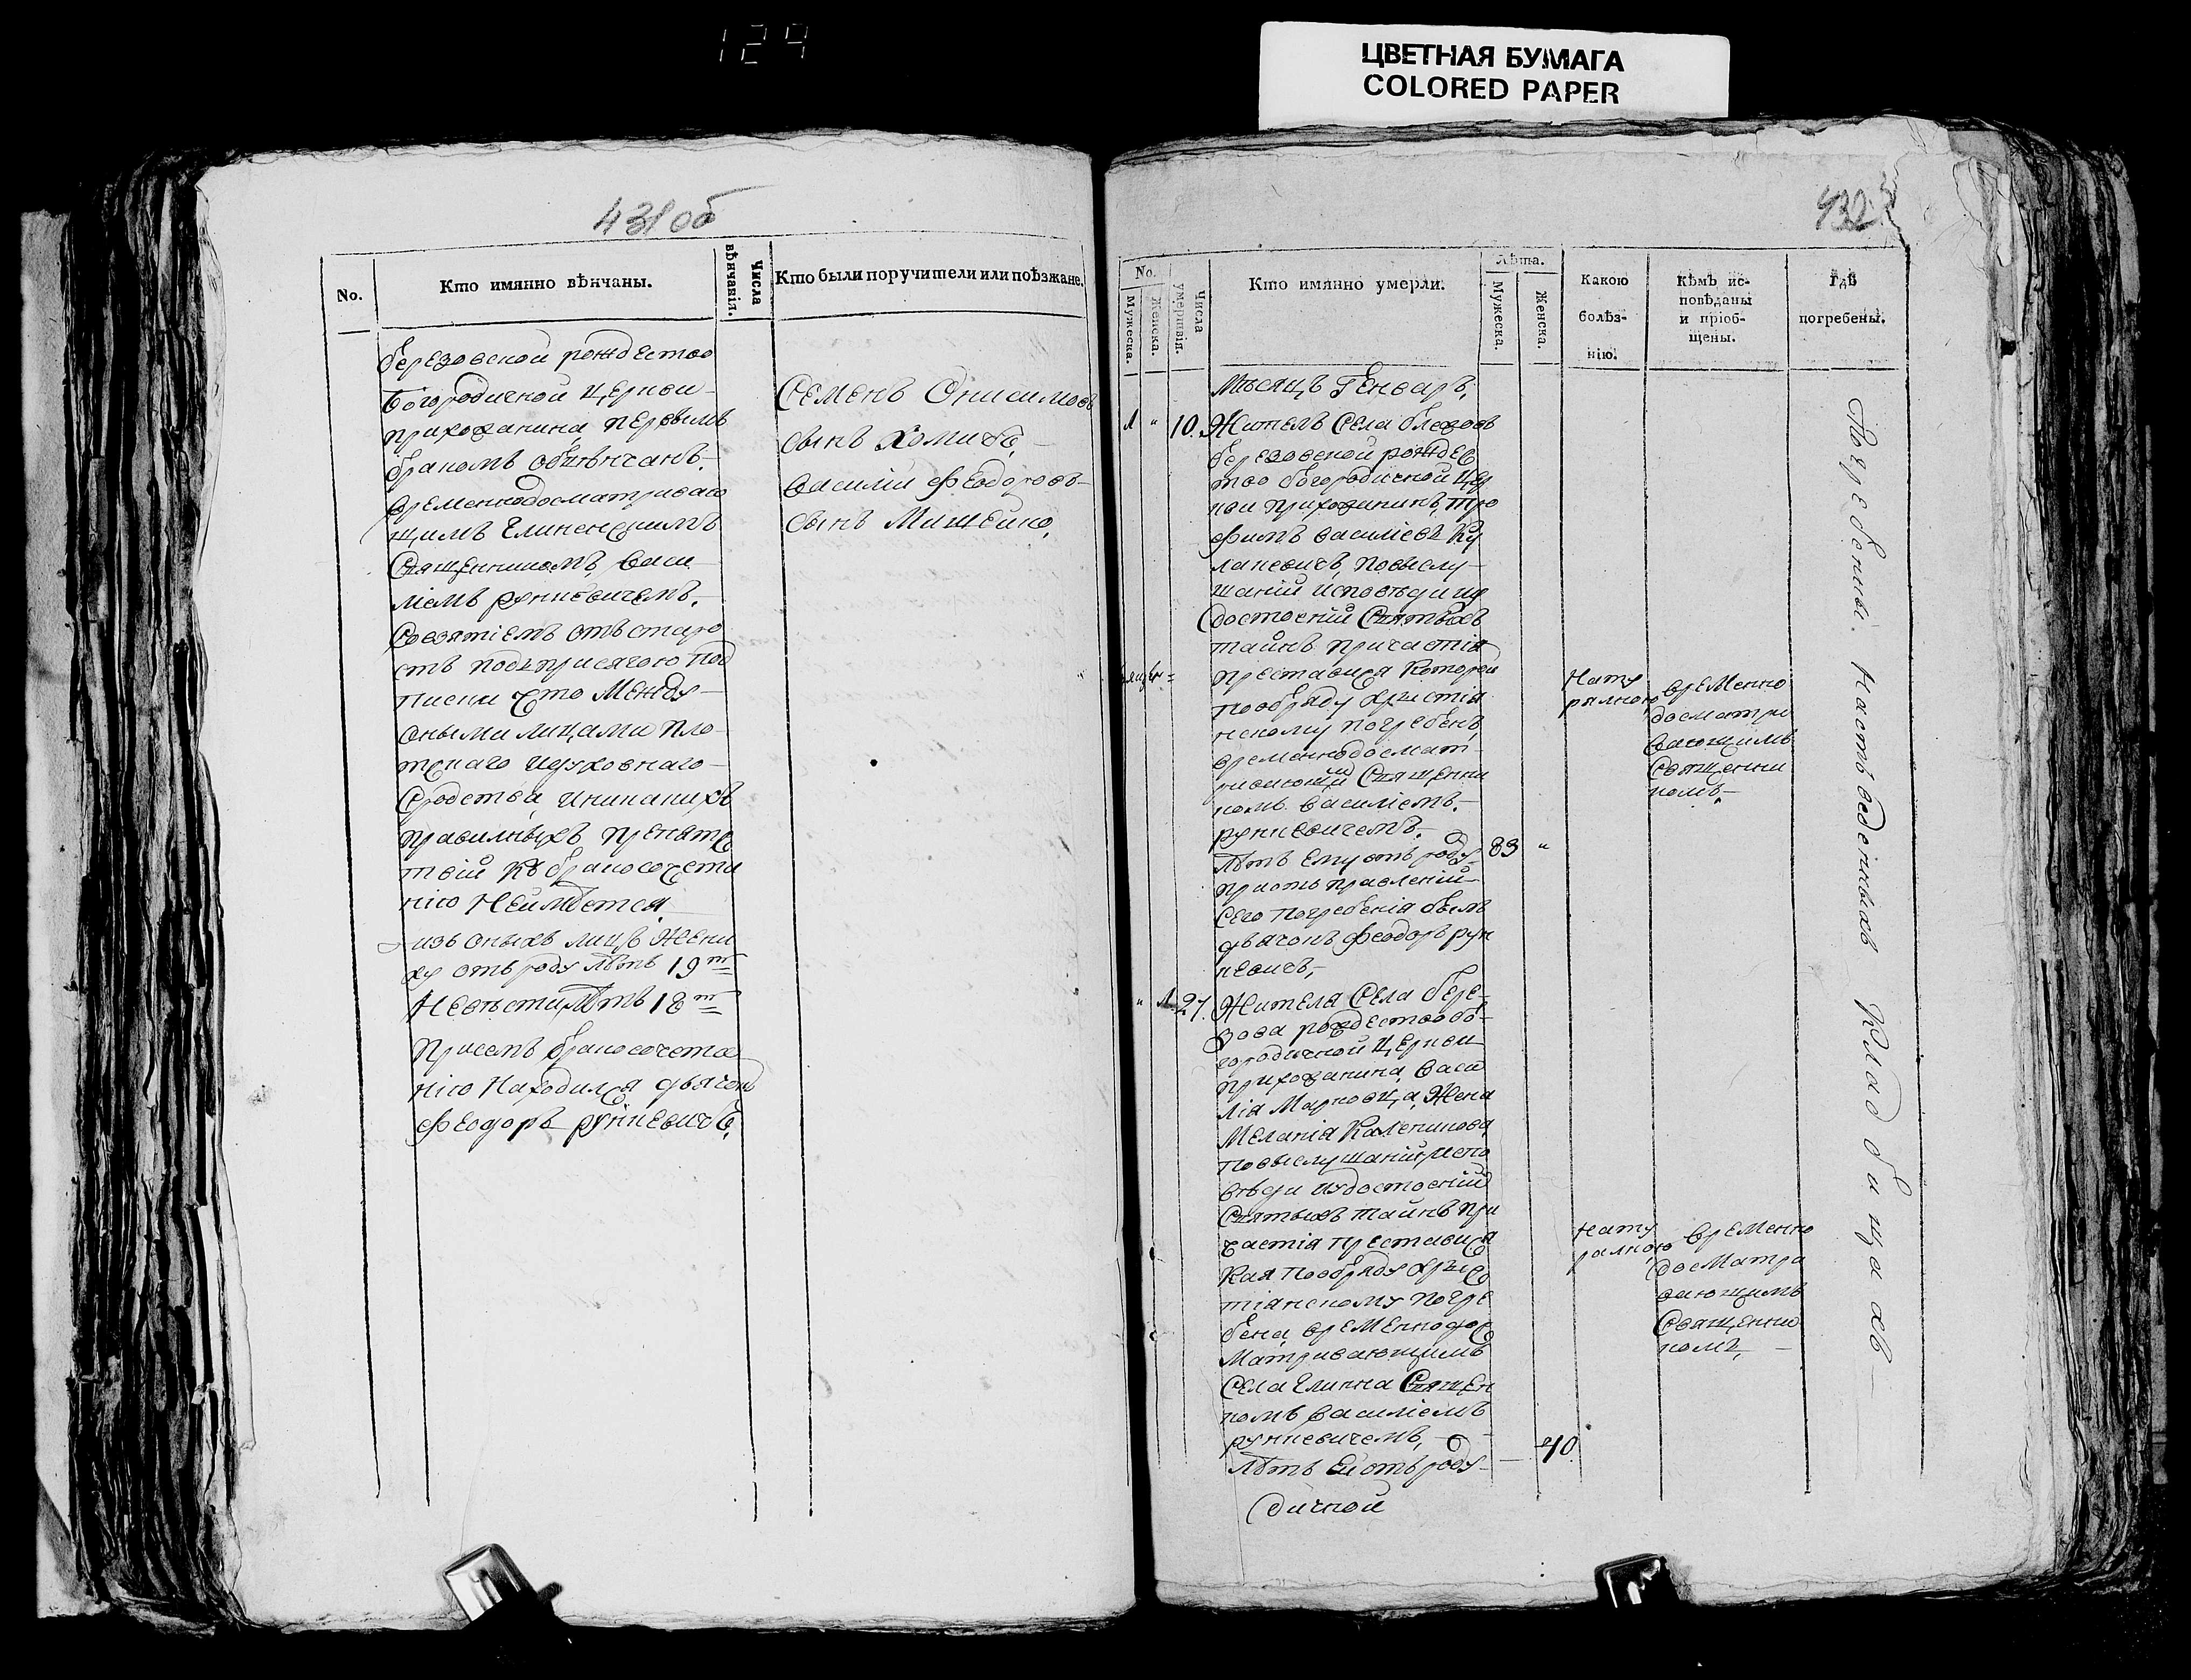 124
ЦВЕТНАЯ БУМАГА
COLORED PAPER
431 об
No.
Кто имянно вѣнчаны.
Числа вѣнчанія.
Кто были поручители или поѣзжане.
березовской рождество
Богородичной Церкви
прихожанина, первымъ
бракомъ обвѣнчанъ,
временнодосматриваю
щимъ Глиненскимъ
Священникомъ, Васи
ліемъ рункевичемъ.
Совзятіемъ отъ старо
стъ подъ присягою под
писки Что Между
оными лицами пло
тскаго идуховнаго
Сродства, иникакихъ
правилныхъ препятс
твій Къ бракосочета
нію Неимѣется
изъ оныхъ лицъ Жени
ху отъ роду лѣтъ 19т
Невѣсти лѣтъ 18т
Присемъ бракосочета
нію Находился дьячокъ
Феодоръ рункевичъ,
Семенъ Онисимовъ
сынъ Хомичъ,
Василій Феодоровъ
сынъ Мишейко,
432
No.
Мужеска.
Женска.
Числа умершвія.
Кто имянно умерли.
Лѣта.
Мужеска.
Женска.
Какою
болѣз-
нію.
Кѣмъ ис-
повѣданы
и пріоб-
щены.
Гдѣ
погребены.
Мѣсяцъ Генваръ,
1 " 10. Жителъ Села
березовской рождес
тво богородичной Цер
кви прихожанинъ, тро
фимъ василіевъ Ку
лакевичъ, повыслу
шаніи исповѣди иу
достоеніи Святыхъ
тайнъ причастія
преставися Которой
пообряду христіа
нскому погребенъ,
временнодосмат
Священни
комъ василіемъ
рункевичемъ.
лѣтъ Ему отъ роду 83 "
приотправленіи
Сего погребенія былъ
дьячокъ Феодоръ рун
кевичъ,
Нату
ралною
временно
досматри
вающимъ
Священни
комъ,
" 1 27. Жителя Села бере
зова рождество бо
городичной Церкви
прихожанина, васи
лія Марковца, Жена
Меланія Каленикова,
повыслушаніи испо
вѣди иудостоеніи
Святыхъ тайнъ при
частія преставися
Кая пообряду хрис
тіанскому погре
бена, временнодос
матривающимъ
Села Глинна Священ
комъ василіемъ
рункевичемъ,
лѣтъ Ей отъ роду — 40
дичной
Нату
ралною
временно
досматри
вающимъ
Священни
комъ,
Погребенны. Наотведенныхъ Кладбищахъ